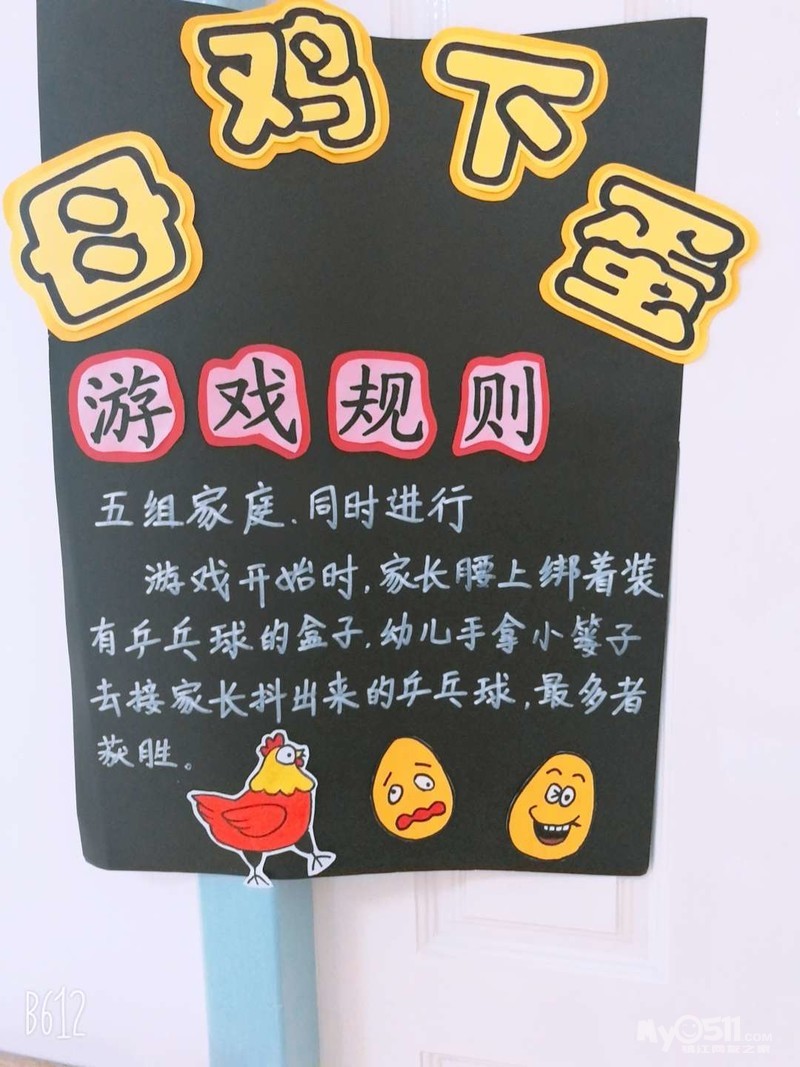 母鸡下蛋
游戏规则
五组家庭.同时进行
游戏开始时,家长腰上绑着装
有乒乓球的盒子.幼儿手拿小篓子
去接家长抖出来的乒乓球,最多者
获胜。
B612
My0511.COM